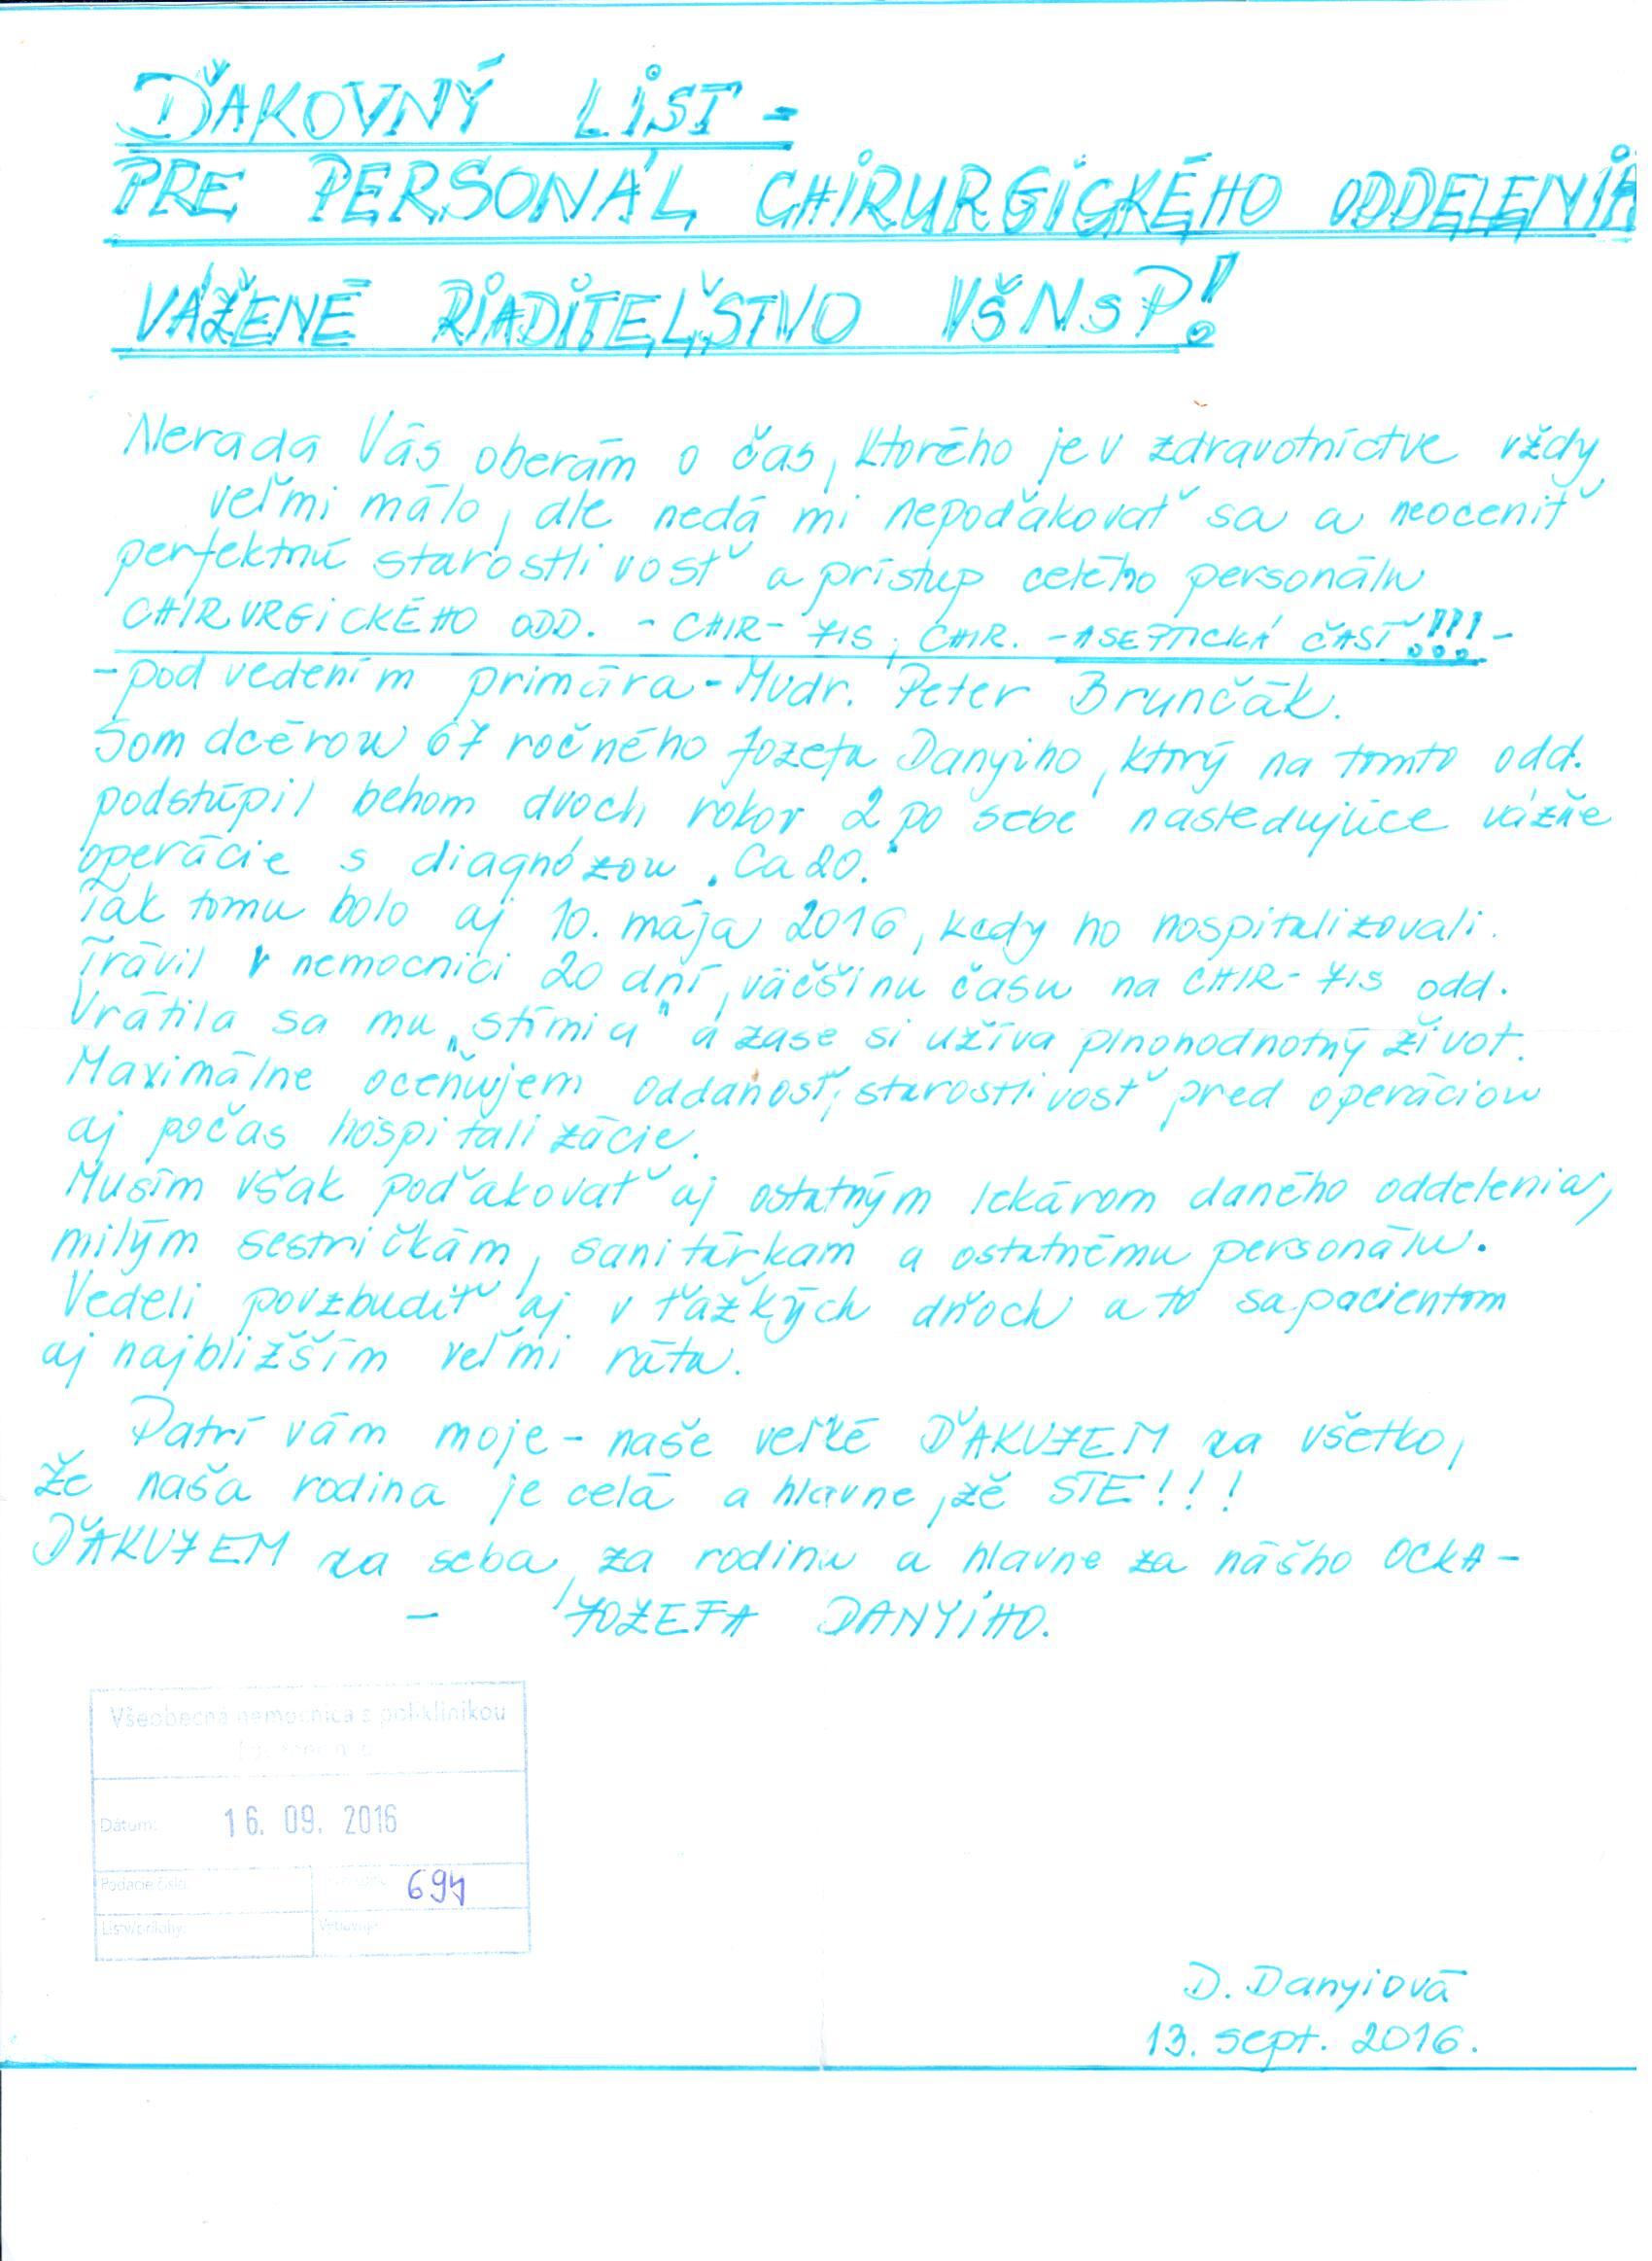 ĎAKOVNÝ LIST -
PRE PERSONÁL CHIRURGICKÉHO ODDELENIA
VÁŽENÉ RIADITEĽSTVO VŠNsP!
Nerada Vás oberám o čas, ktorého je v zdravotníctve vždy
veľmi málo, ale nedá mi nepoďakovať sa a neoceniť
perfektnú starostlivosť a prístup celého personálu
CHIRURGICKÉHO ODD. - CHIR- JIS, CHIR. - ASEPTICKÁ ČASŤ!!! -
- pod vedením primára - Mudr. Peter Brunčák.
Som dcérou 67 ročného Jozefa Danyiho, ktorý na tomto odd.
podstúpil behom dvoch rokov 2 po sebe nasledujúce vážne
operácie s diagnózou
Tak tomu bolo aj 10. mája 2016, kedy ho hospitalizovali.
Trávil v nemocnici 20 dní, väčšinu času na CHIR- JIS odd.
Vrátila sa mu a zase si užíva plnohodnotný život.
Maximálne oceňujem oddanosť, starostlivosť pred operáciou
aj počas hospitalizácie.
Musím však poďakovať aj ostatným lekárom daného oddelenia,
milým sestričkám, sanitárkam a ostatnému personálu.
Vedeli povzbudiť aj v ťažkých dňoch a to sa pacientom
aj najbližším veľmi ráta.
Patrí vám moje - naše veľké ĎAKUJEM za všetko,
že naša rodina je celá a hlavne, že STE!!!
ĎAKUJEM za seba, za rodinu a hlavne za nášho OCKA -
- JOZEFA DANYIHO.
Všeobecná nemocnica s poliklinikou
Dátum: 16. 09. 2016
Podacie číslo: 694
Listy/prílohy: Vybavuje:
D. Danyiová
13. sept. 2016.